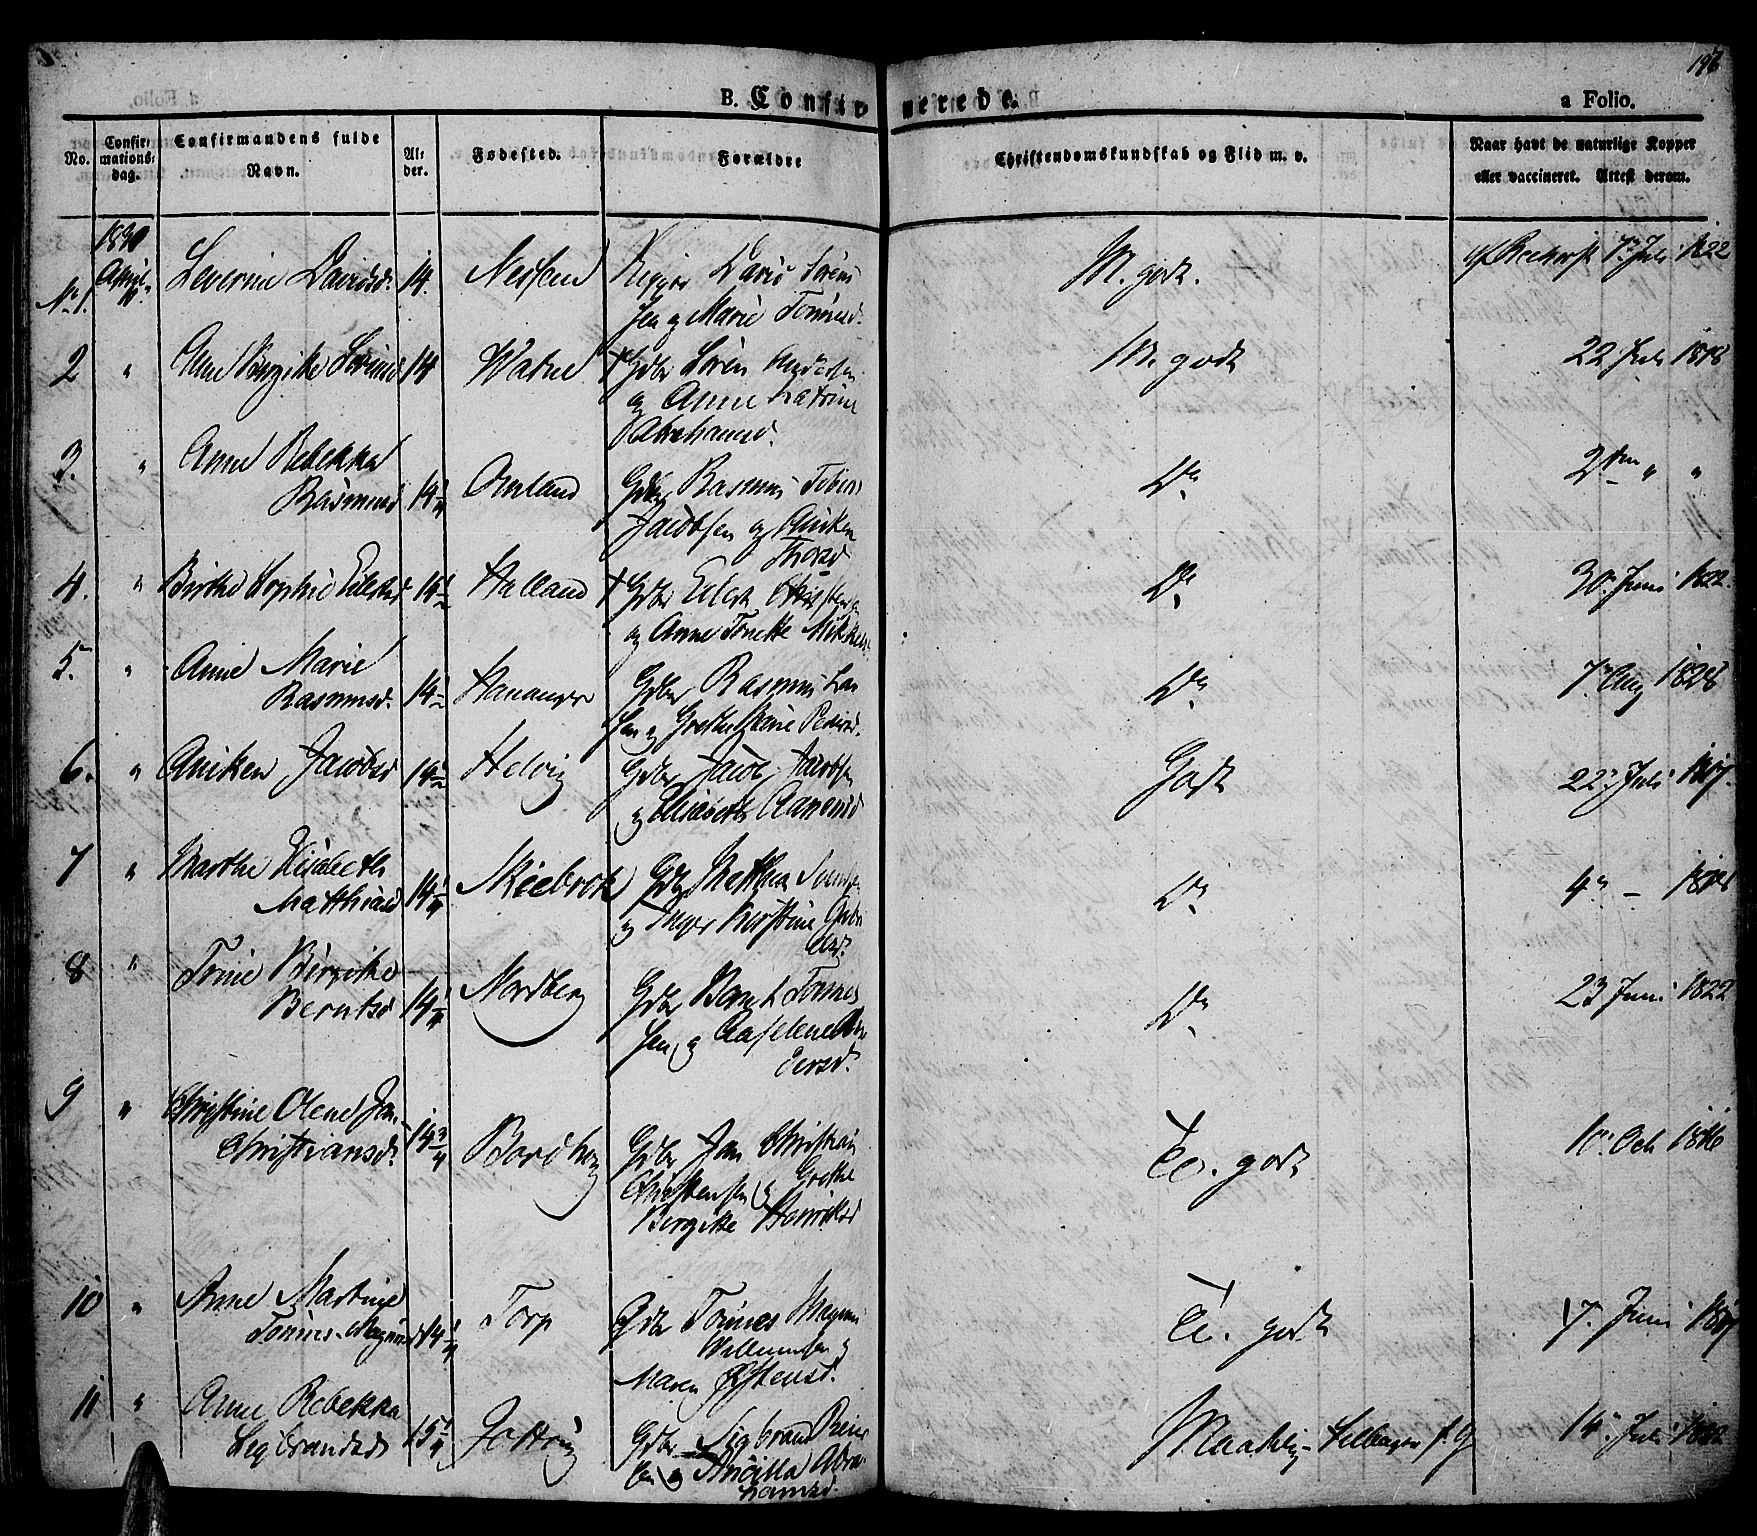 197
B. Confirmerede.
a Folio.
No.
Confirmations:
dag.
Confirmandens fulde
Navn.
Al:
der.
Fødested.
Forældre
Christendomskundskab og Flid m. v.
Naar havt de naturlige Kopper
eller vaccineret. Attest derom.
No 1. Severine Davidsd. 14. David Sørens
sen og Marie Tønnesd. M. godt. 7de Juli 1822
2 " Anne 14 Watne † Gdbr Søren
og Anne Katrine
Abrahamsd. M. godt 22 Juli 1818
3. " Anne Rebekka
Rasmusd 14 1/4 Omland Gdbr Rasmus Tobias
Jacobsen og Aniken
Thorsd Do 2den " "
4. " Birthe Sophie Eilertsd 14 1/2 Halland † Gdbr Eilert
og Anne Tonette Do 30 Juni 1822.
5. " Anne Marie
Rasmusd. 14 1/2 Hananger Gdbr Rasmus Lar
sen og Grethe Marie Pedersd. Do 7 Aug 1828
6. " Aniken Jacobsd 14 1/2 Helvig Gdbr Jacob Jacobsen
og Elisabeth Aanensd Godt 22 Juli 1817.
7 " Marthe Elisabeth
Matthiasd 14 1/4 Skeibrok Gdbr Matthias Svensen
og Inger Kirstine Gabri
elsd. Do 4de - 1818
8 " Tonie Birgithe
Berntsd 14 1/4 Nordberg Gdbr Bernt Tønnes
sen og Do 23 Juni 1822
9 " Christine Olene Jan
Christiansd. 14 3/4 Gdbr Jan Christian
Christensen og Grethe
Birgitte Henriksd Tc. godt 10 Oct 1816
10 " Anne Martine
Tønnes Magnusd 14 1/4 Torp Gdbr Tønnes Magnus
Willumsen og
Maren Østensd. Tc. godt 17. Juni 1817
11 " Anne Rebekka
Sigbrandsd 15 1/4 Jøtting Gdbr Sigbrand Reiers
sen og Pricilla Abra
hamsd. Maadelig 14 Juli 1822